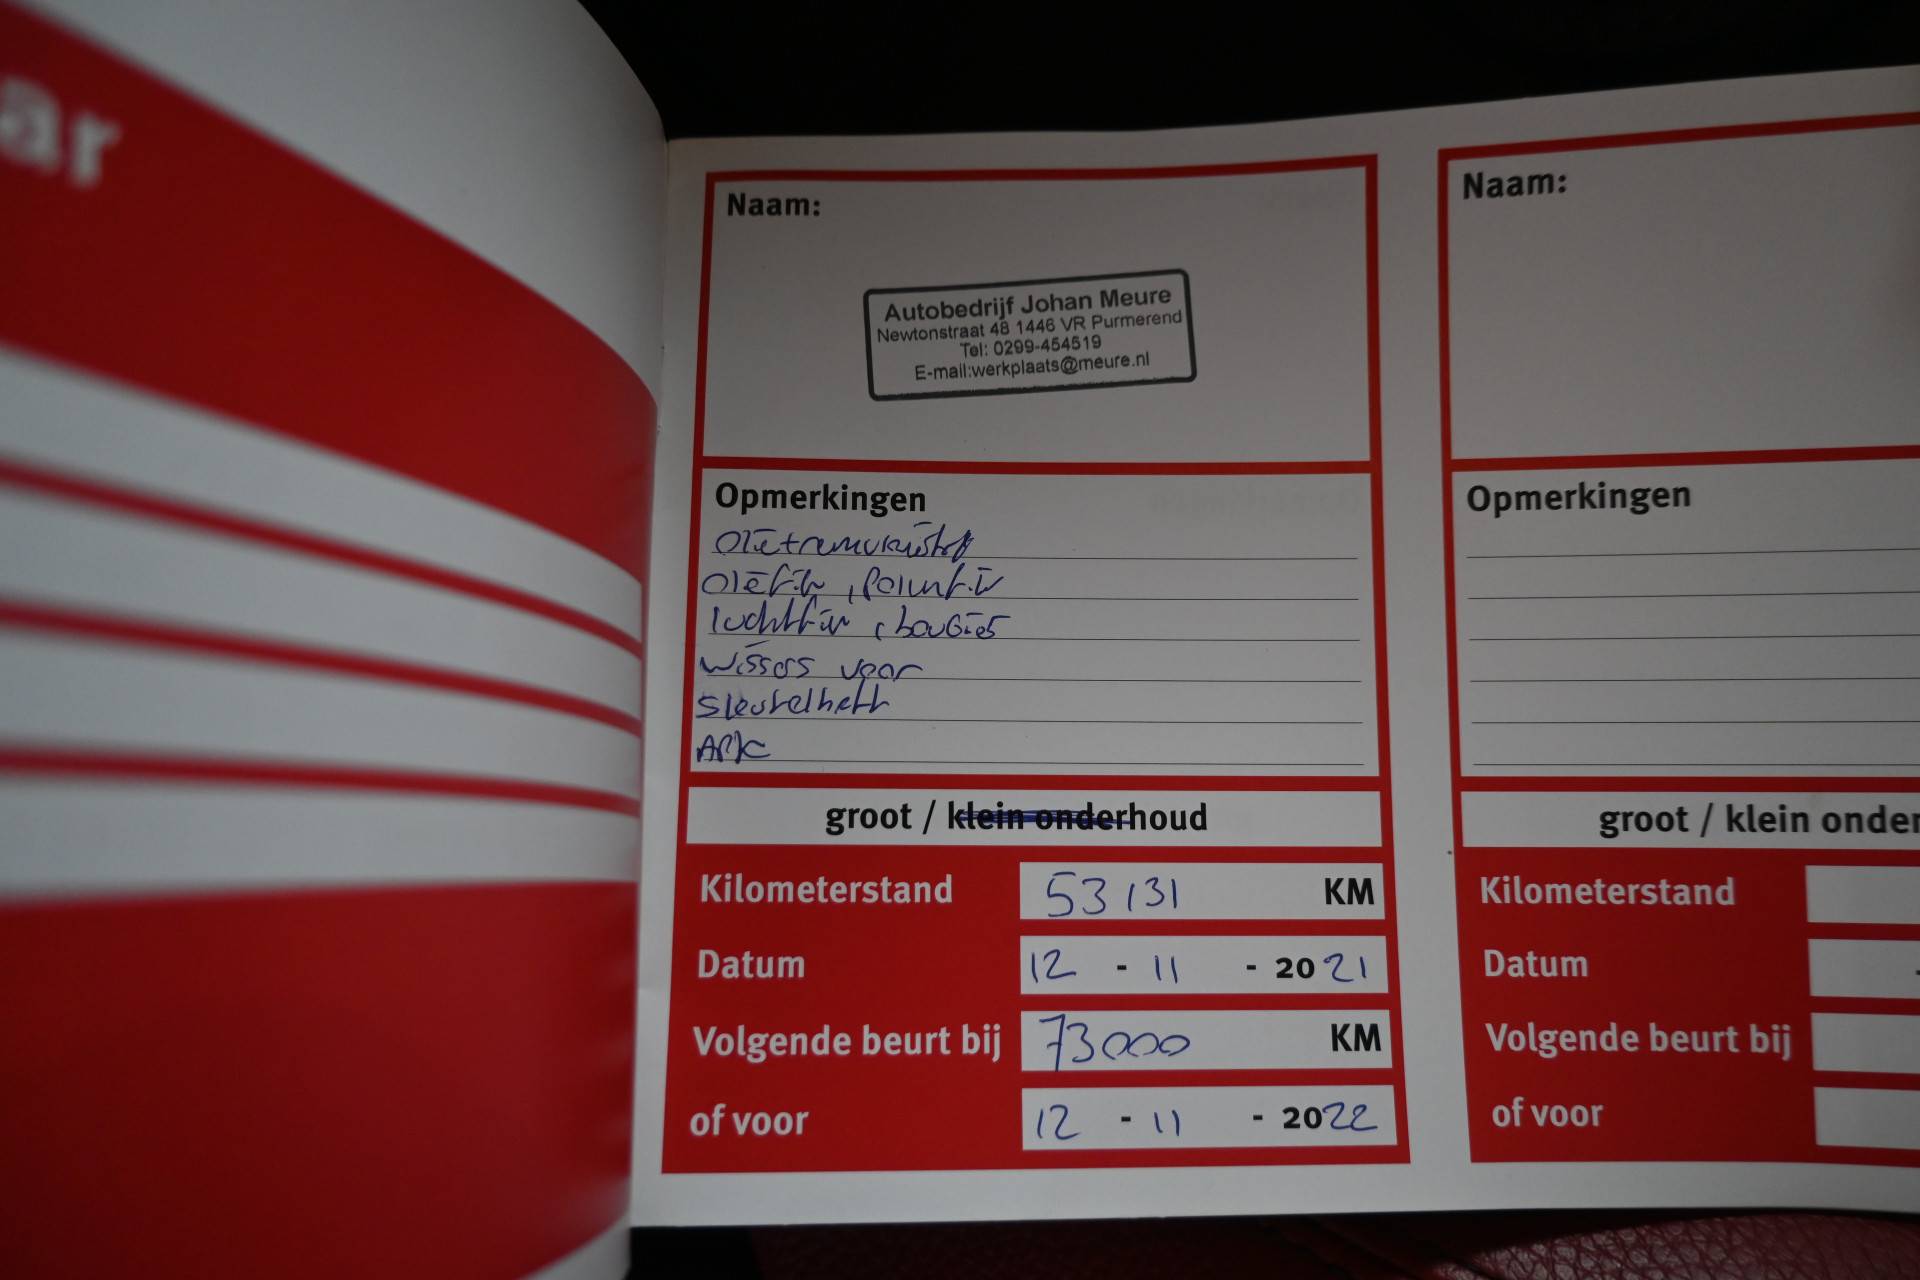 ar
Naam:
Autobedrijf Johan Meure
Newtonstraat 48 1446 VR Purmerend
Tel: 0299-454519
E-mail:werkplaats@meure.nl
Opmerkingen
olie+remvloeistof
oliefilt, pollenfilt
luchtfilt, bougies
wissers voor
sleutelbatt
APK
groot / klein onderhoud
Kilometerstand 53131 KM
Datum 12 - 11 - 2021
Volgende beurt bij 73000 KM
of voor 12 - 11 - 2022
Naam:
Opmerkingen
groot / klein onder
Kilometerstand
Datum -
Volgende beurt bij
of voor